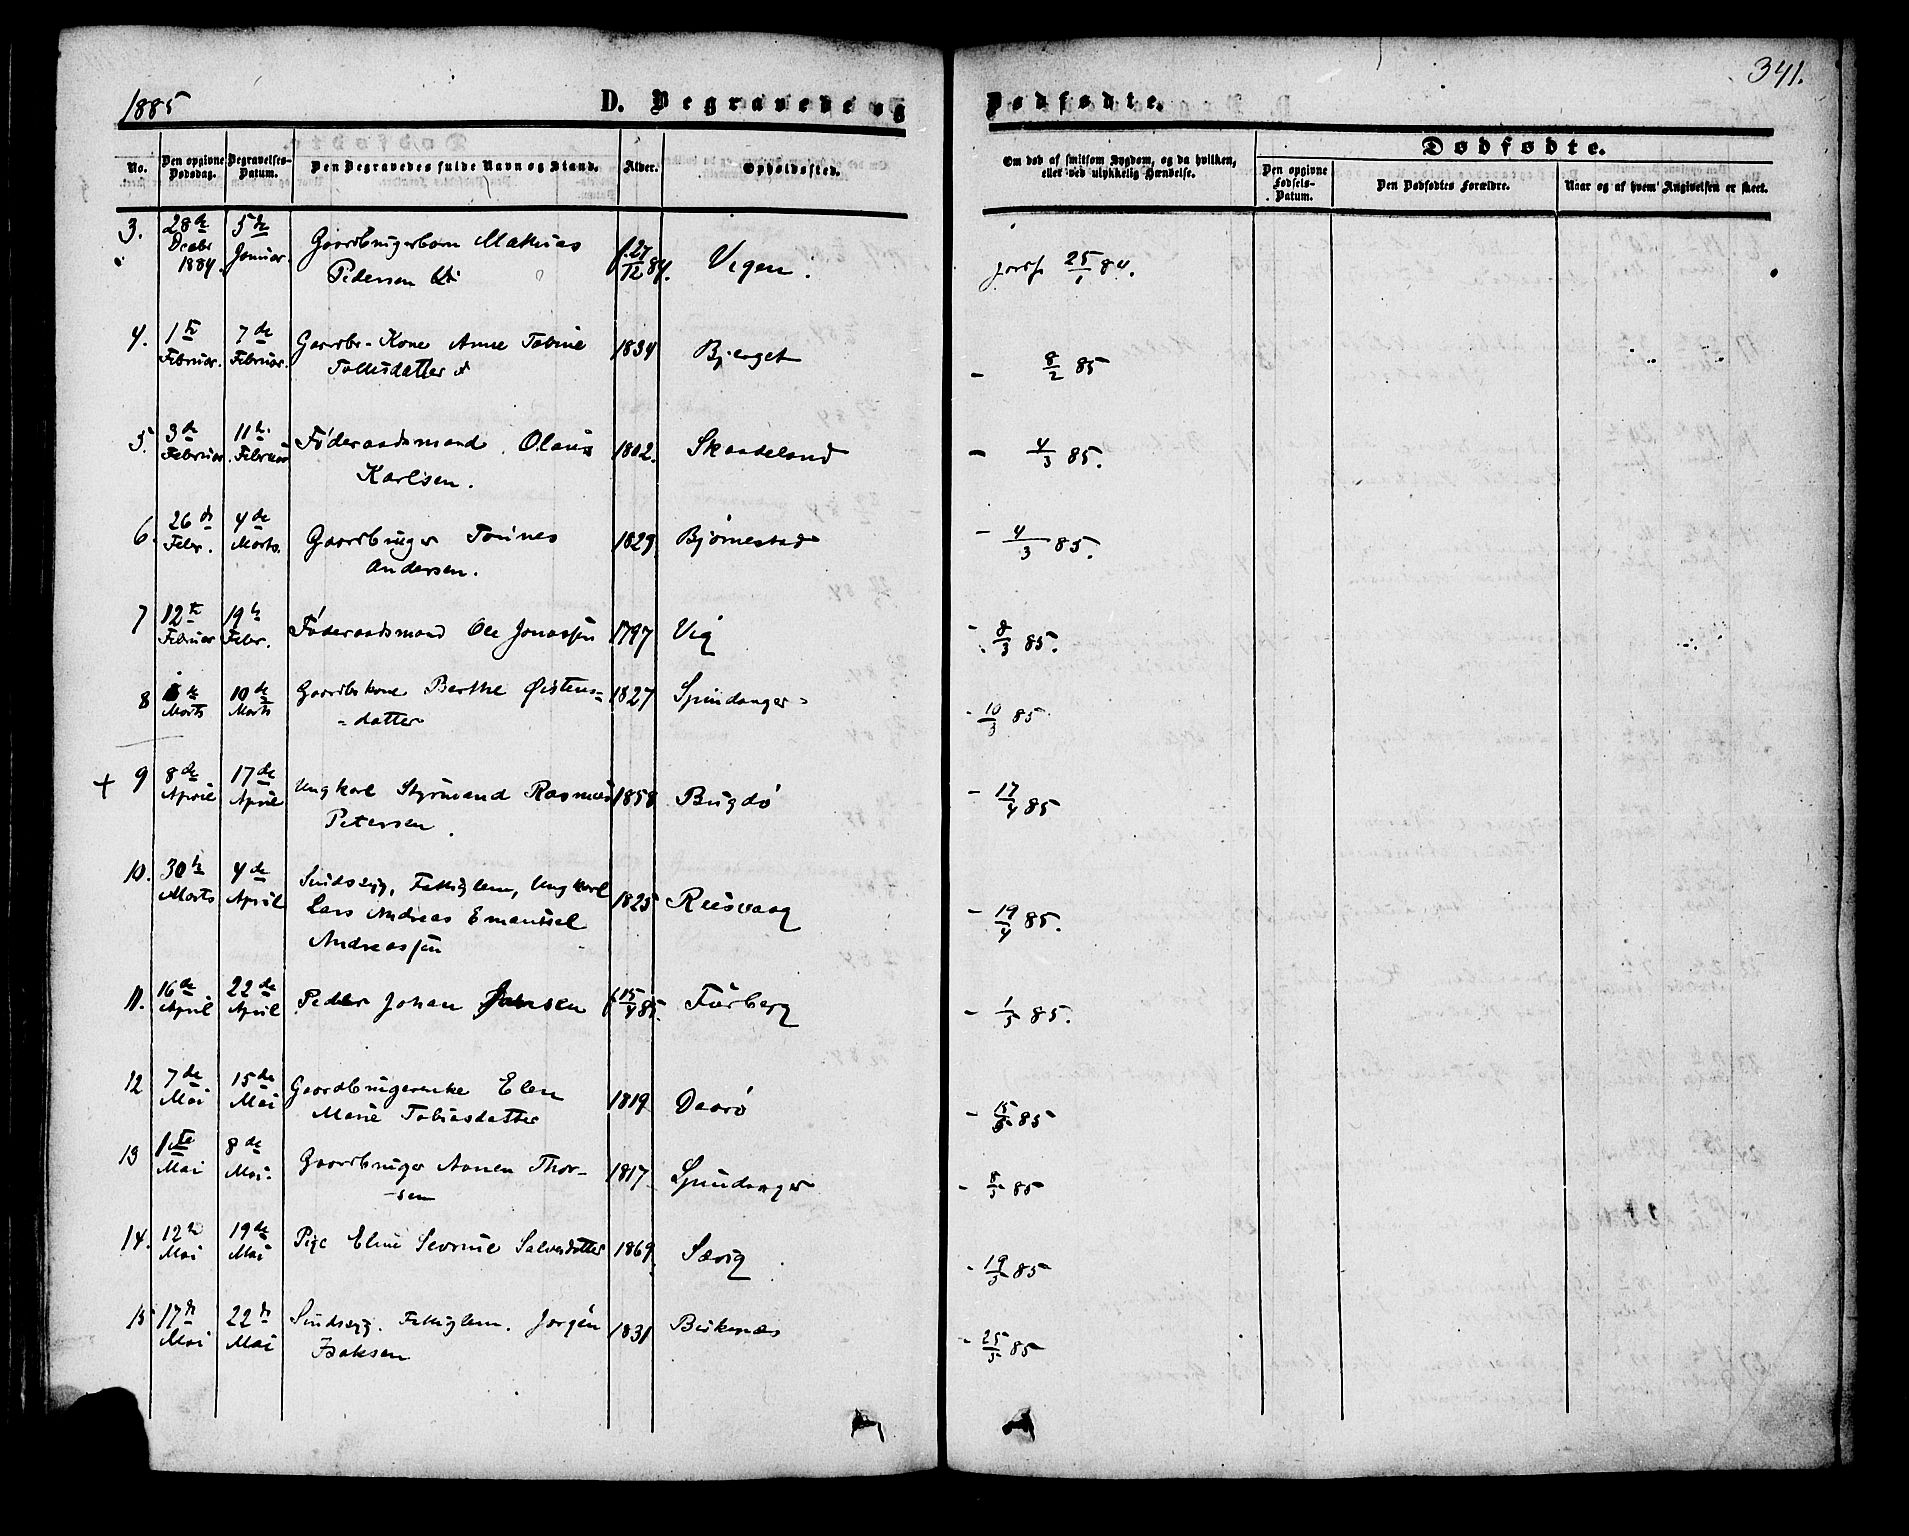 1885
D. Begravede og Dødfødte.
341.
No.
Den opgivne Dødsdag.
Begravelses-Datum.
Den Begravedes fulde Navn og Stand.
Alder.
Opholdssted.
Om død af smitsom Sygdom, og da hvilken, eller ved ulykkelig Hændelse.
Dødfødte.
Den opgivne Fødsels-Datum.
Den Dødfødtes Forældre.
Naar og af hvem Angivelsen er skeet.
3. 28de Decbr 1884. 5te Januar. Gaardbrugerbarn Mathias
Pedersen f. 27/12 84. Vigen. jords. 25/1 84.
4. 1te Februar. 7de Februar. Gaardbr. Kone Anne Tobine
Tollisdatter 1834 Bjerget - 8/2 85
5. 3de Februar 11te Februar Føderaadsmand Olaus
Karlsen. 1802. Skaadeland - 4/3 85.
6. 26de Febr. 4de Marts. Gaardbruger Tønnes
Andersen. 1829 Bjørnestad - 4/3 85.
7 12te Februar 19de Febr. Føderaadsmand Ole Jonassen 1797 Vig - 8/3 85.
8 Marts 10de Marts Gaardbrkone Berthe Østens-
-datter 1827 Spindanger - 10/3 85
+ 9 8de April 17de April Ungkarl Styrmand Rasmus
Petersen. 1858 Bugdø - 17/4 85
10. 30te Marts 4de April Sindssyg, Fattiglem, Ungkarl
Lars Andreas Emanuel
Andreassen 1825 Reesvaag - 19/4 85.
11. 16de April 22de April Peder Johan Jansen f. 15/4 85. Furberg - 1/5 85.
12 7de Mai 15de Mai Gaardbrugerenke Elen
Marie Tobiasdatter 1819 Daarø - 15/5 85
13 1te Mai 8de Mai. Gaardbruger Aanen Thor-
-sen 1817 Spindanger - 8/5 85
14. 12te Mai 19de Mai Pige Eline Sevrine Salvesdatter 1869. Sævig - 19/5 85
15 17de Mai 22de Mai Sindssyg. Fattiglem. Jørgen
Isaksen 1831 Birkenæs - 25/5 85